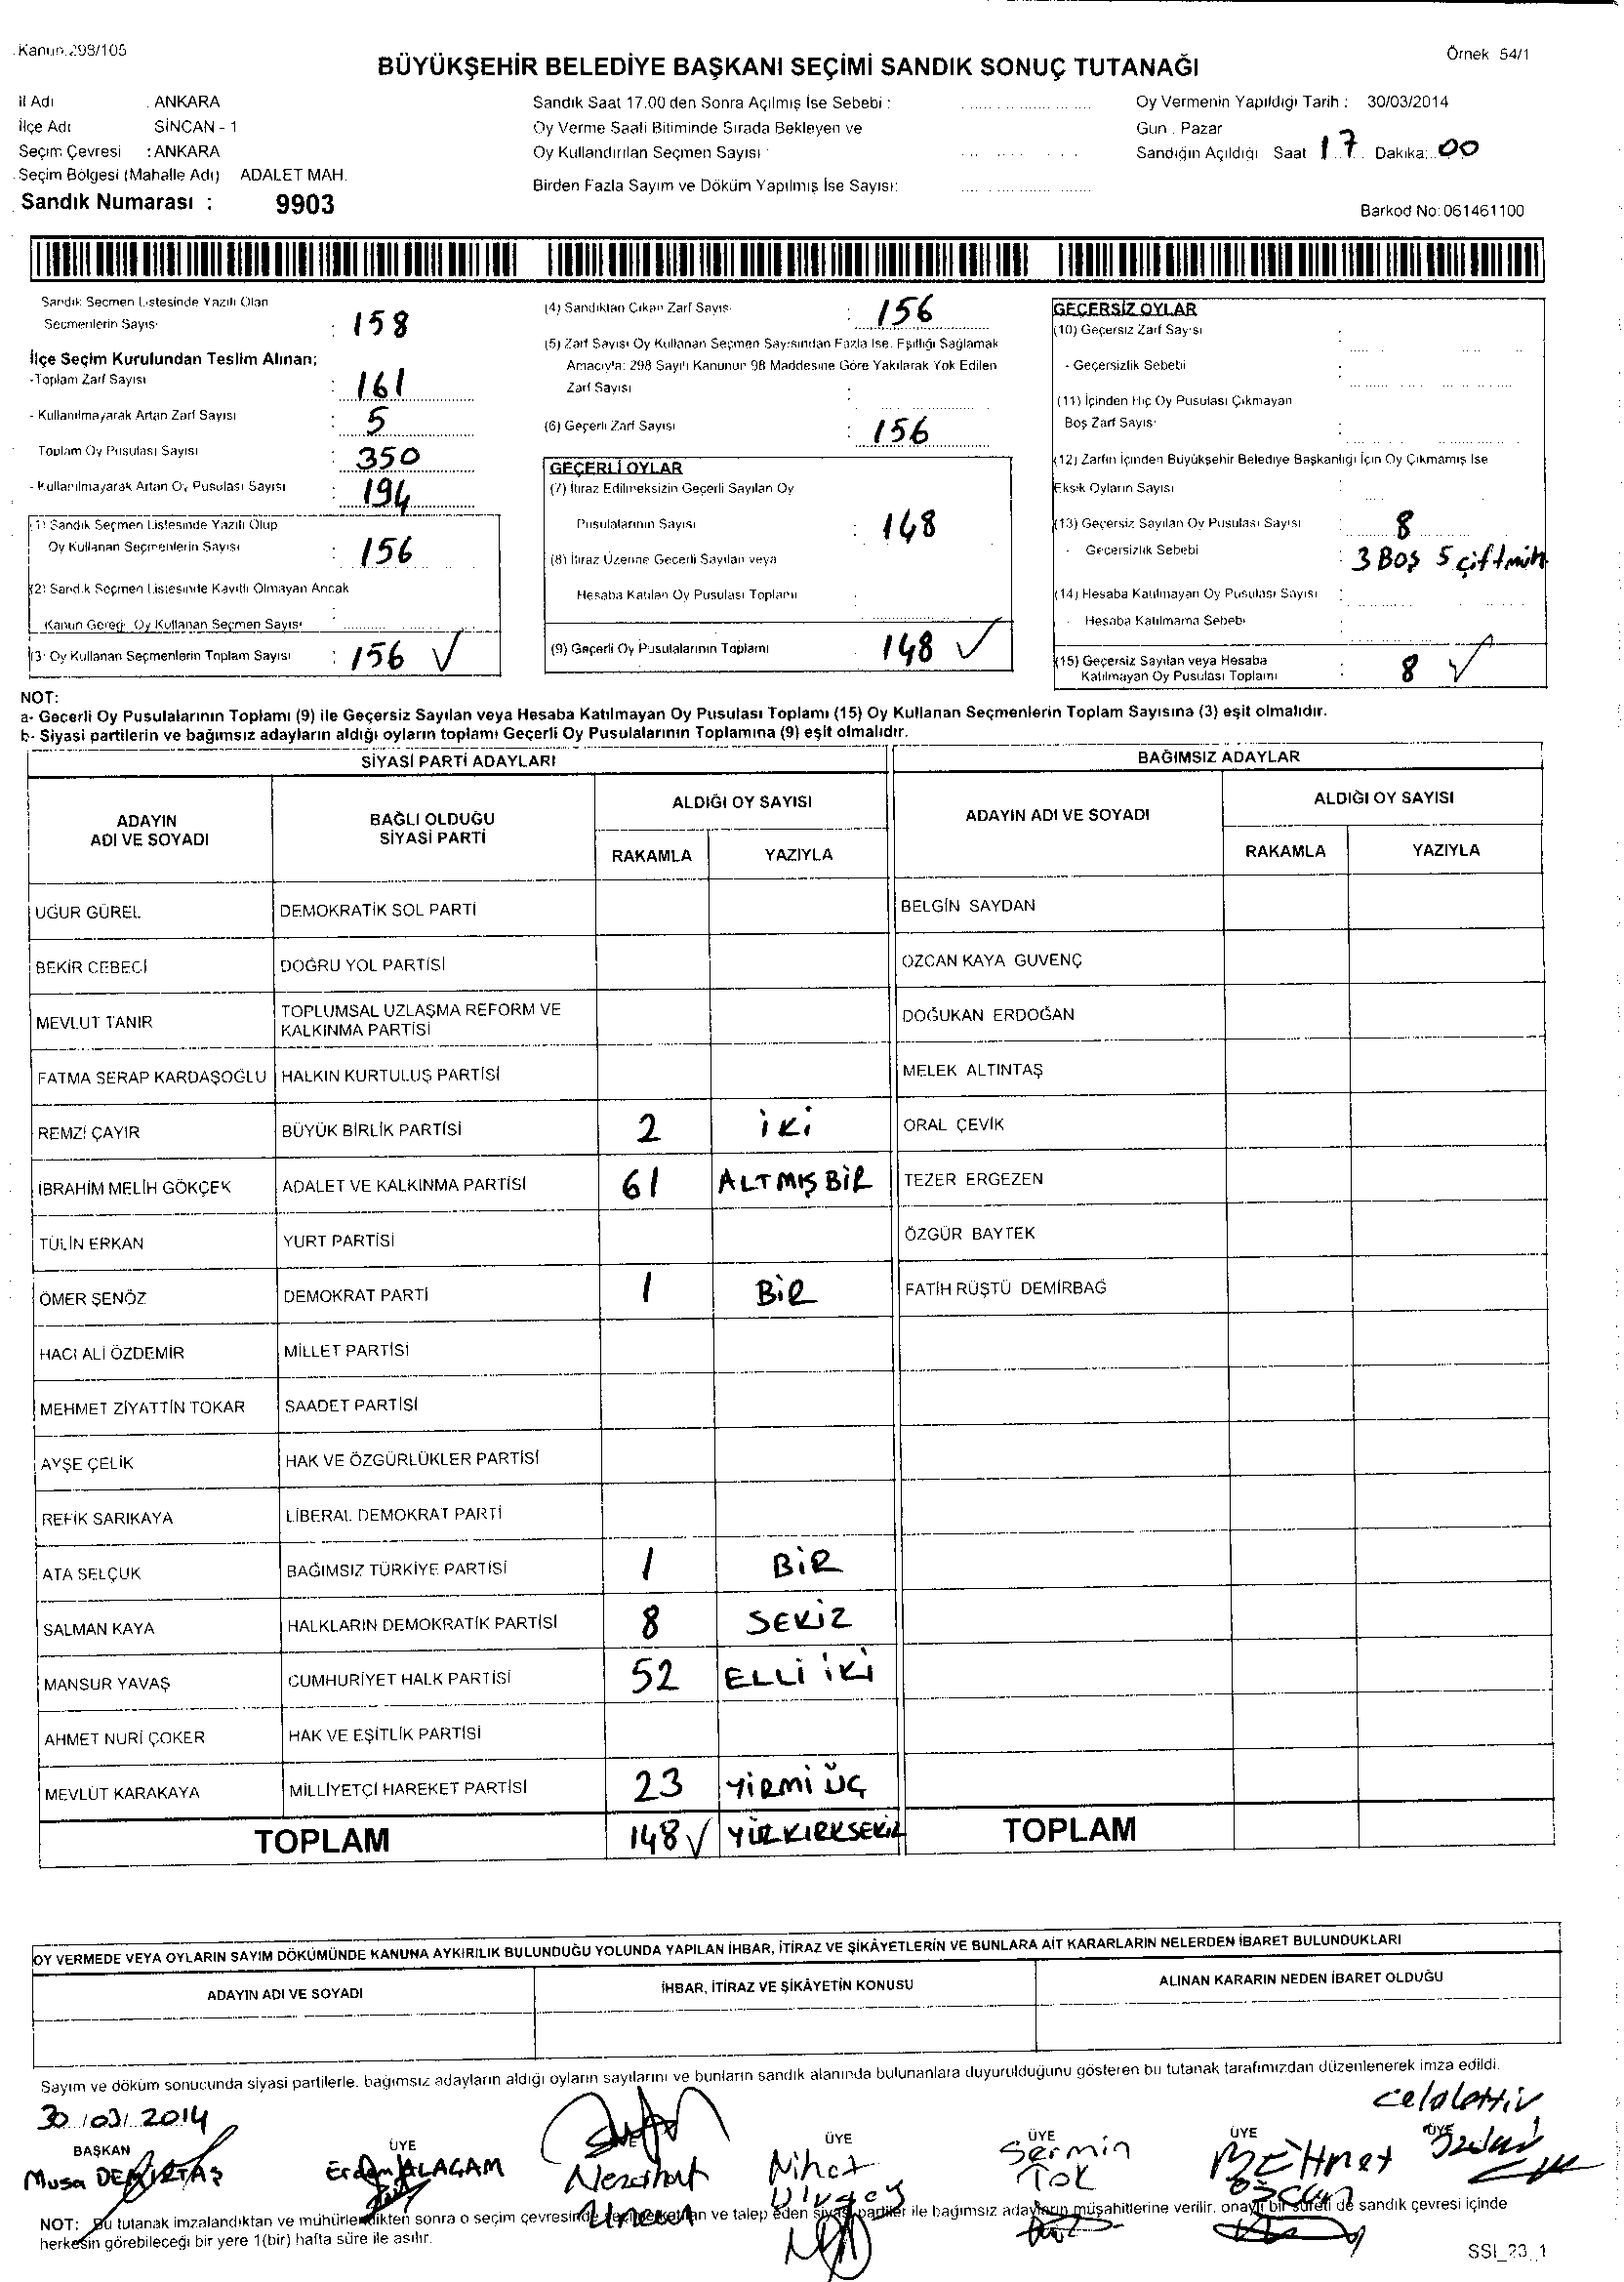 Kanun.298/105
Örnek 54/1
BÜYÜKŞEHİR BELEDİYE BAŞKANI SEÇİMİ SANDIK SONUÇ TUTANAĞI
İl Adı : ANKARA
İlçe Adı SİNCAN - 1
Seçim Çevresi : ANKARA
Seçim Bölgesi (Mahalle Adı) ADALET MAH.
Sandık Numarası : 9903
Sandık Saat 17.00 den Sonra Açılmış İse Sebebi :
Oy Verme Saati Bitiminde Sırada Bekleyen ve
Oy Kullandırılan Seçmen Sayısı :
Birden Fazla Sayım ve Döküm Yapılmış İse Sayısı:
Oy Vermenin Yapıldığı Tarih : 30/03/2014
Gün : Pazar
Sandığın Açıldığı Saat 17 Dakika: 00
Barkod No: 061461100
Sandık Seçmen Listesinde Yazılı Olan
Seçmenlerin Sayısı : 158
İlçe Seçim Kurulundan Teslim Alınan;
-Toplam Zarf Sayısı : 161
- Kullanılmayarak Artan Zarf Sayısı : 5
Toplam Oy Pusulası Sayısı : 350
- Kullanılmayarak Artan Oy Pusulası Sayısı : 194
(1) Sandık Seçmen Listesinde Yazılı Olup
Oy Kullanan Seçmenlerin Sayısı : 156
(2) Sandık Seçmen Listesinde Kayıtlı Olmayan Ancak
Kanun Gereği Oy Kullanan Seçmen Sayısı :
(3) Oy Kullanan Seçmenlerin Toplam Sayısı : 156 ✓
(4) Sandıktan Çıkan Zarf Sayısı : 156
(5) Zarf Sayısı Oy Kullanan Seçmen Sayısından Fazla İse, Eşitliği Sağlamak
Amacıyla: 298 Sayılı Kanunun 98 Maddesine Göre Yakılarak Yok Edilen
Zarf Sayısı :
(6) Geçerli Zarf Sayısı : 156
GEÇERLİ OYLAR
(7) İtiraz Edilmeksizin Geçerli Sayılan Oy
Pusulalarının Sayısı : 148
(8) İtiraz Üzerine Geçerli Sayılan veya
Hesaba Katılan Oy Pusulası Toplamı :
(9) Geçerli Oy Pusulalarının Toplamı 148 ✓
GEÇERSİZ OYLAR
(10) Geçersiz Zarf Sayısı :
- Geçersizlik Sebebi :
(11) İçinden Hiç Oy Pusulası Çıkmayan
Boş Zarf Sayısı :
(12) Zarfın İçinden Büyükşehir Belediye Başkanlığı İçin Oy Çıkmamış İse
Eksik Oyların Sayısı :
(13) Geçersiz Sayılan Oy Pusulası Sayısı : 8
- Geçersizlik Sebebi : 3 Boş 5 çift müh
(14) Hesaba Katılmayan Oy Pusulası Sayısı :
- Hesaba Katılmama Sebebi :
(15) Geçersiz Sayılan veya Hesaba
Katılmayan Oy Pusulası Toplamı : 8 ✓
NOT:
a- Geçerli Oy Pusulalarının Toplamı (9) ile Geçersiz Sayılan veya Hesaba Katılmayan Oy Pusulası Toplamı (15) Oy Kullanan Seçmenlerin Toplam Sayısına (3) eşit olmalıdır.
b- Siyasi partilerin ve bağımsız adayların aldığı oyların toplamı Geçerli Oy Pusulalarının Toplamına (9) eşit olmalıdır.
SİYASİ PARTİ ADAYLARI
BAĞIMSIZ ADAYLAR
ADAYIN ADI VE SOYADI
BAĞLI OLDUĞU SİYASİ PARTİ
ALDIĞI OY SAYISI
RAKAMLA YAZIYLA
ADAYIN ADI VE SOYADI
ALDIĞI OY SAYISI
RAKAMLA YAZIYLA
UĞUR GÜREL DEMOKRATİK SOL PARTİ BELGİN SAYDAN
BEKİR CEBECİ DOĞRU YOL PARTİSİ ÖZCAN KAYA GÜVENÇ
MEVLÜT TANIR TOPLUMSAL UZLAŞMA REFORM VE KALKINMA PARTİSİ DOĞUKAN ERDOĞAN
FATMA SERAP KARDAŞOĞLU HALKIN KURTULUŞ PARTİSİ MELEK ALTINTAŞ
REMZİ ÇAYIR BÜYÜK BİRLİK PARTİSİ 2 İKİ ORAL ÇEVİK
İBRAHİM MELİH GÖKÇEK ADALET VE KALKINMA PARTİSİ 61 ALTMIŞ BİR TEZER ERGEZEN
TÜLİN ERKAN YURT PARTİSİ ÖZGÜR BAYTEK
ÖMER ŞENÖZ DEMOKRAT PARTİ 1 BİR FATİH RÜŞTÜ DEMİRBAĞ
HACI ALİ ÖZDEMİR MİLLET PARTİSİ
MEHMET ZİYATTİN TOKAR SAADET PARTİSİ
AYŞE ÇELİK HAK VE ÖZGÜRLÜKLER PARTİSİ
REFİK SARIKAYA LİBERAL DEMOKRAT PARTİ
ATA SELÇUK BAĞIMSIZ TÜRKİYE PARTİSİ 1 BİR
SALMAN KAYA HALKLARIN DEMOKRATİK PARTİSİ 8 SEKİZ
MANSUR YAVAŞ CUMHURİYET HALK PARTİSİ 52 ELLİ İKİ
AHMET NURİ ÇOKER HAK VE EŞİTLİK PARTİSİ
MEVLÜT KARAKAYA MİLLİYETÇİ HAREKET PARTİSİ 23 YİRMİ ÜÇ
TOPLAM 148 ✓ YÜZKIRKSEKİZ TOPLAM
OY VERMEDE VEYA OYLARIN SAYIM DÖKÜMÜNDE KANUNA AYKIRILIK BULUNDUĞU YOLUNDA YAPILAN İHBAR, İTİRAZ VE ŞİKÂYETLERİN VE BUNLARA AİT KARARLARIN NELERDEN İBARET BULUNDUKLARI
ADAYIN ADI VE SOYADI İHBAR, İTİRAZ VE ŞİKÂYETİN KONUSU ALINAN KARARIN NEDEN İBARET OLDUĞU
Sayım ve döküm sonucunda siyasi partilerle, bağımsız adayların aldığı oyların sayılarını ve bunların sandık alanında bulunanlara duyurulduğunu gösteren bu tutanak tarafımızdan düzenlenerek imza edildi.
30/03/2014
BAŞKAN ÜYE ÜYE ÜYE ÜYE ÜYE
Musa DEMİRTAŞ
Erdem ALAGAM
Nezahat
Nihat
Sermin TOK
Mehmet
Celalettin
NOT: Bu tutanak imzalandıktan ve mühürlendikten sonra o seçim çevresinde ve talep eden siyasi partiler ile bağımsız adayların müşahitlerine verilir, onaylı bir sureti de sandık çevresi içinde
herkesin görebileceği bir yere 1(bir) hafta süre ile asılır.
SSI_23_1